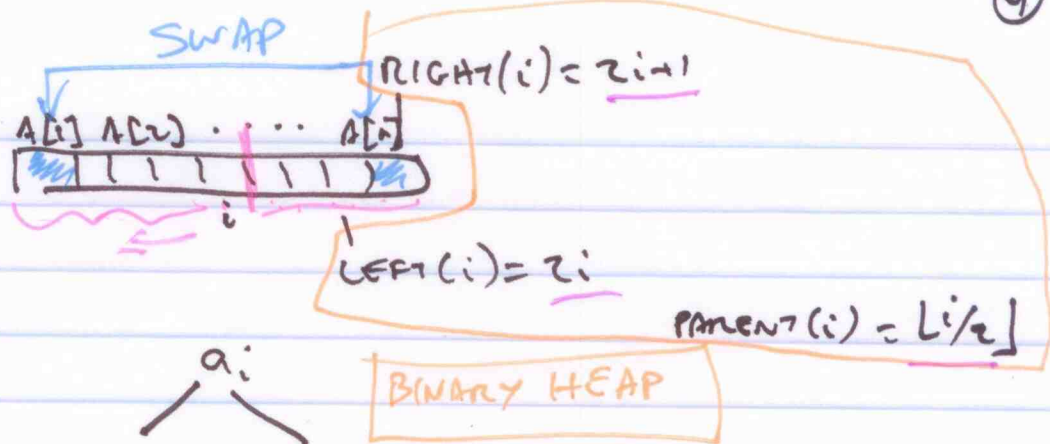 ④
SWAP
RIGHT(i) = 2i+1
A[1] A[2] · · · · A[n]
i
LEFT(i) = 2i
PARENT(i) = ⌊i/2⌋
ai
BINARY HEAP